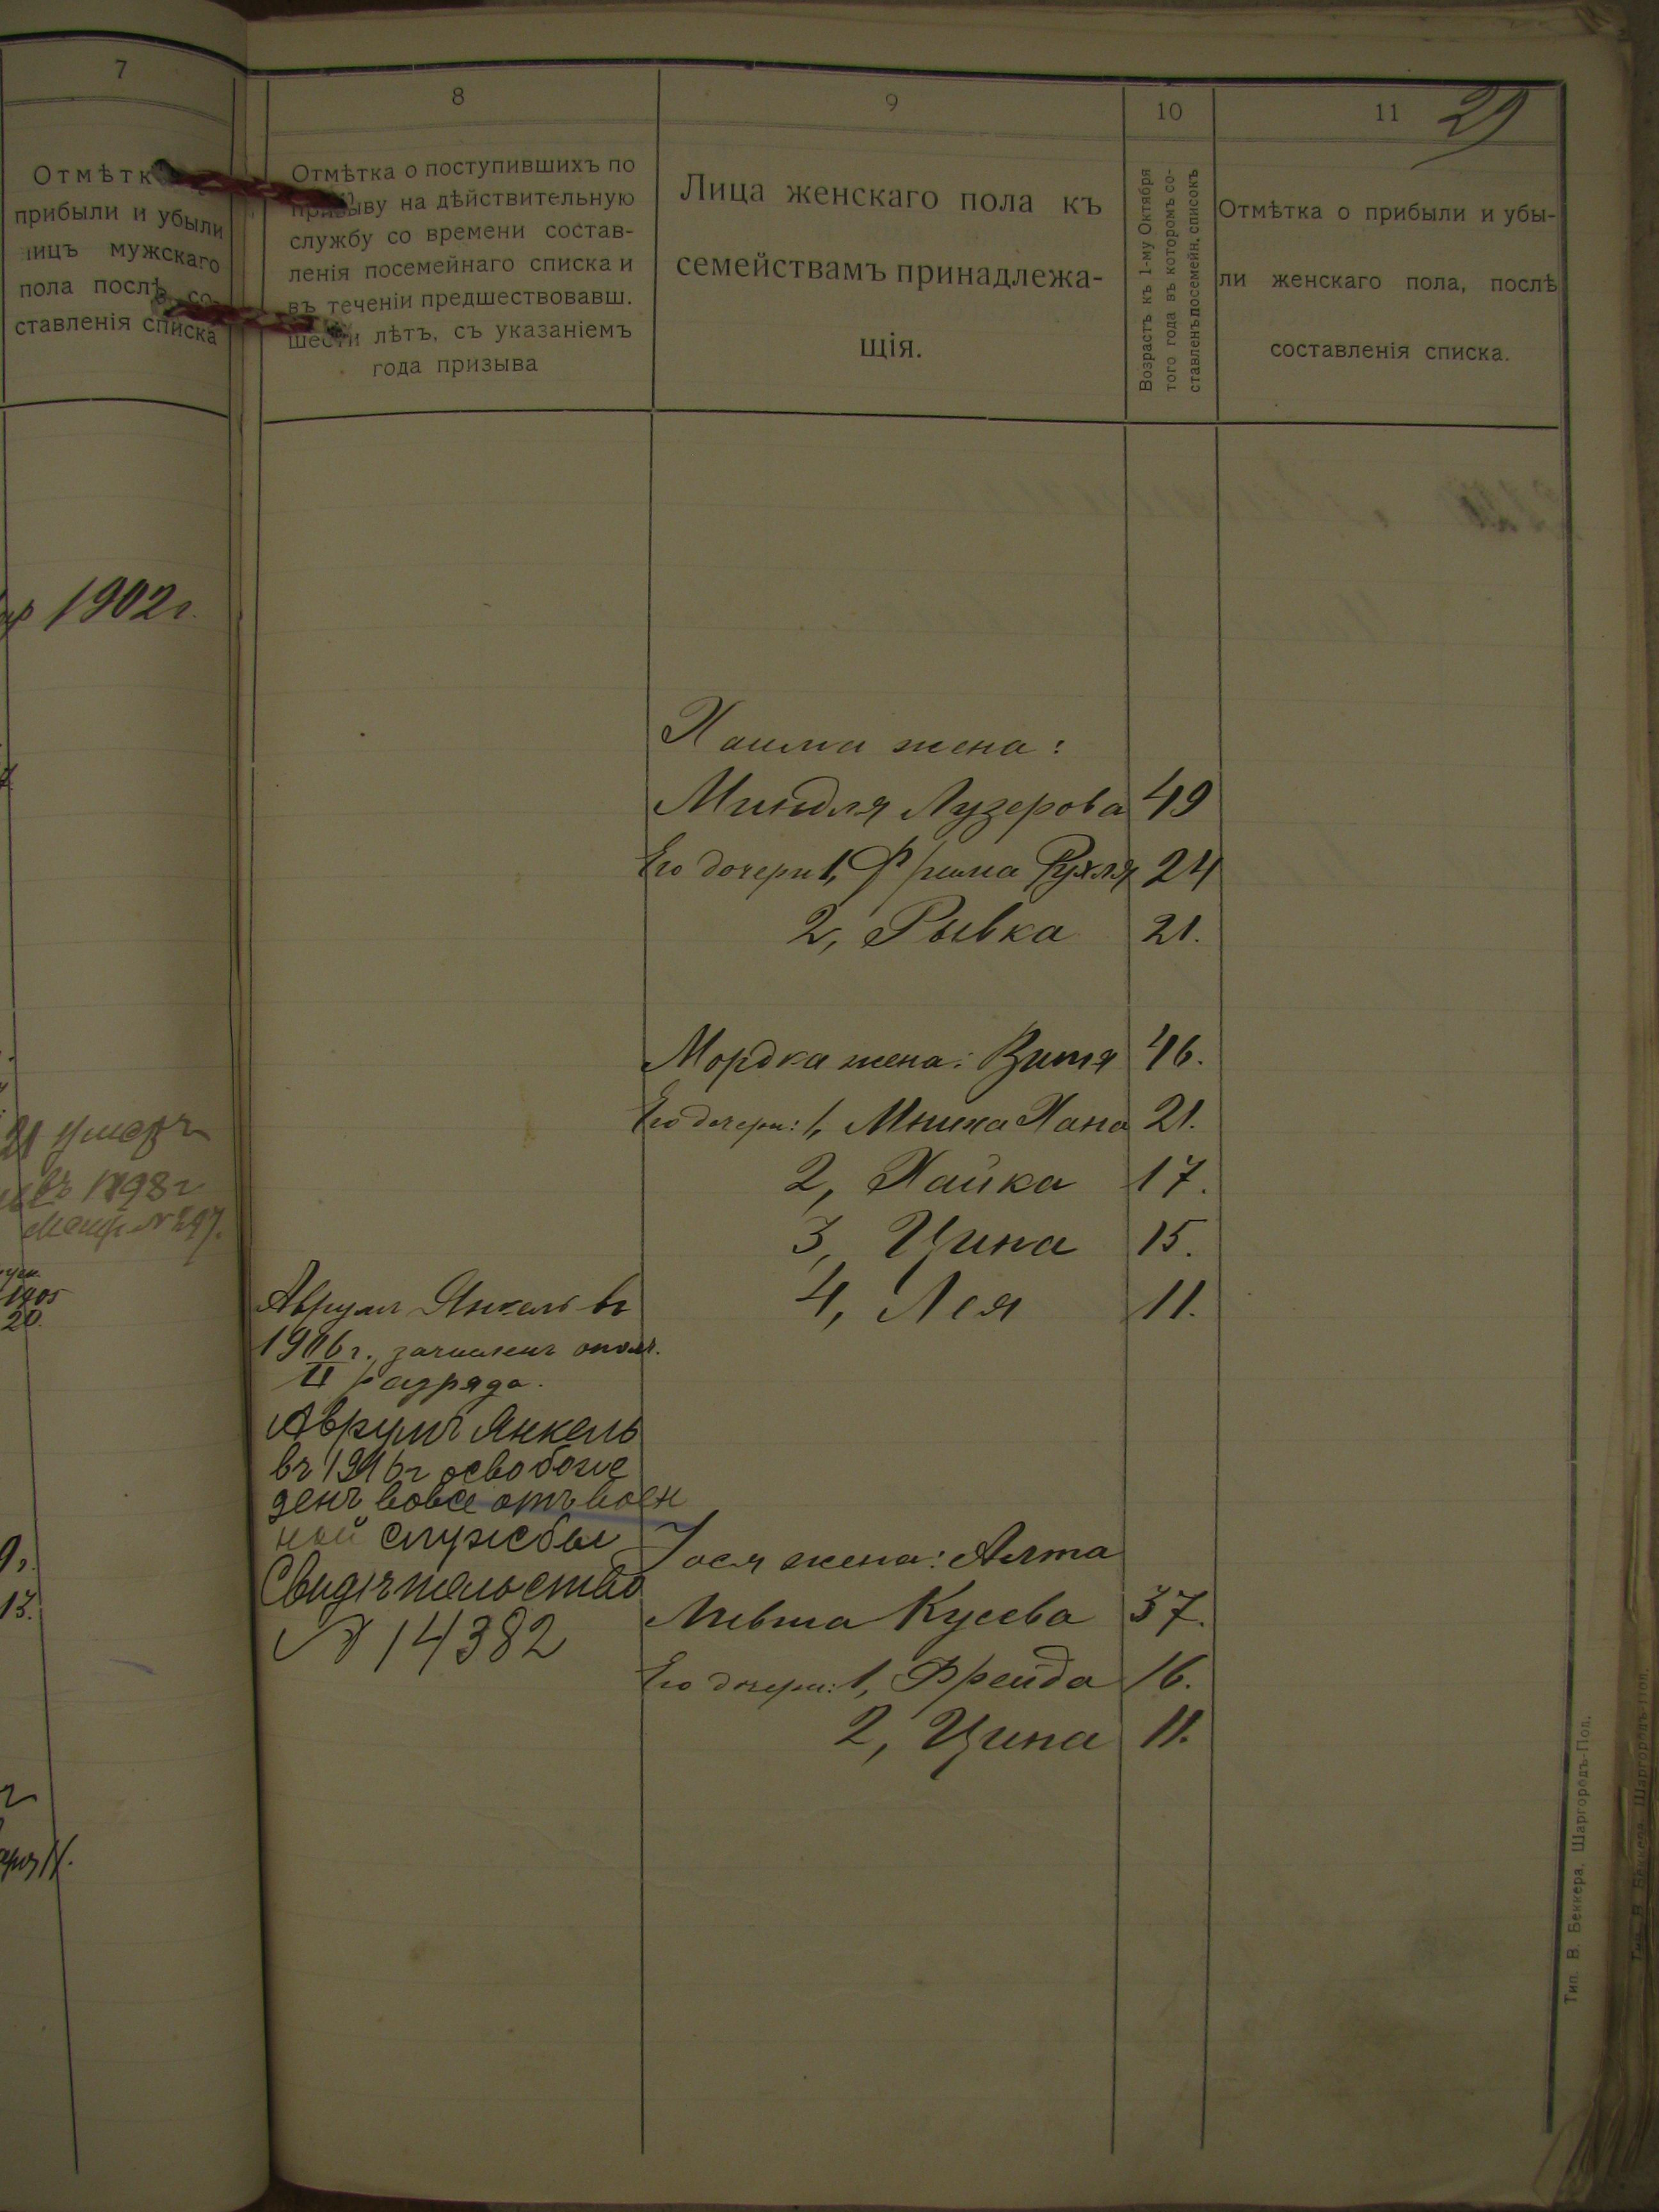 7
Отмѣтк
прибыли и убыли
лицъ мужскаго
пола послѣ со-
ставленія списка
1902 г.
21 умеръ
въ 1898 г
Метр. №
1905
20.
13.
8
Отмѣтка о поступившихъ по
призыву на дѣйствительную
службу со времени состав-
ленія посемейнаго списка и
въ теченіи предшествовавш.
шести лѣтъ, съ указаніемъ
года призыва
Аврумъ Янкель въ
1906 г., зачисленъ ополч.
II разряда.
Аврумъ Янкель
въ 1916 г освобоже
денъ вовсе отъ воен
ной службы
Свидѣтельство
№ 14382
9
Лица женскаго пола къ
семействамъ принадлежа-
щія.
10
Возрастъ къ 1-му Октября
того года въ которомъ со-
ставленъ посемейн. списокъ
11
29
Отмѣтка о прибыли и убы-
ли женскаго пола, послѣ
составленія списка.
Хаима жена:
Миндля Лузерова 49
Его дочери 1, Фрима Рухля 24
2, Рывка 21.
Мордка жена: Витя 46.
Его дочери: 1, Хана 21.
2, Хайка 17.
3, Ципа 15.
4, Лея 11.
Іося жена: Алта
Ливша Кусева 37.
Его дочери: 1, Фрейда 16.
2, Ципа 11.
Тип. В. Беккера, Шаргородъ-Под.